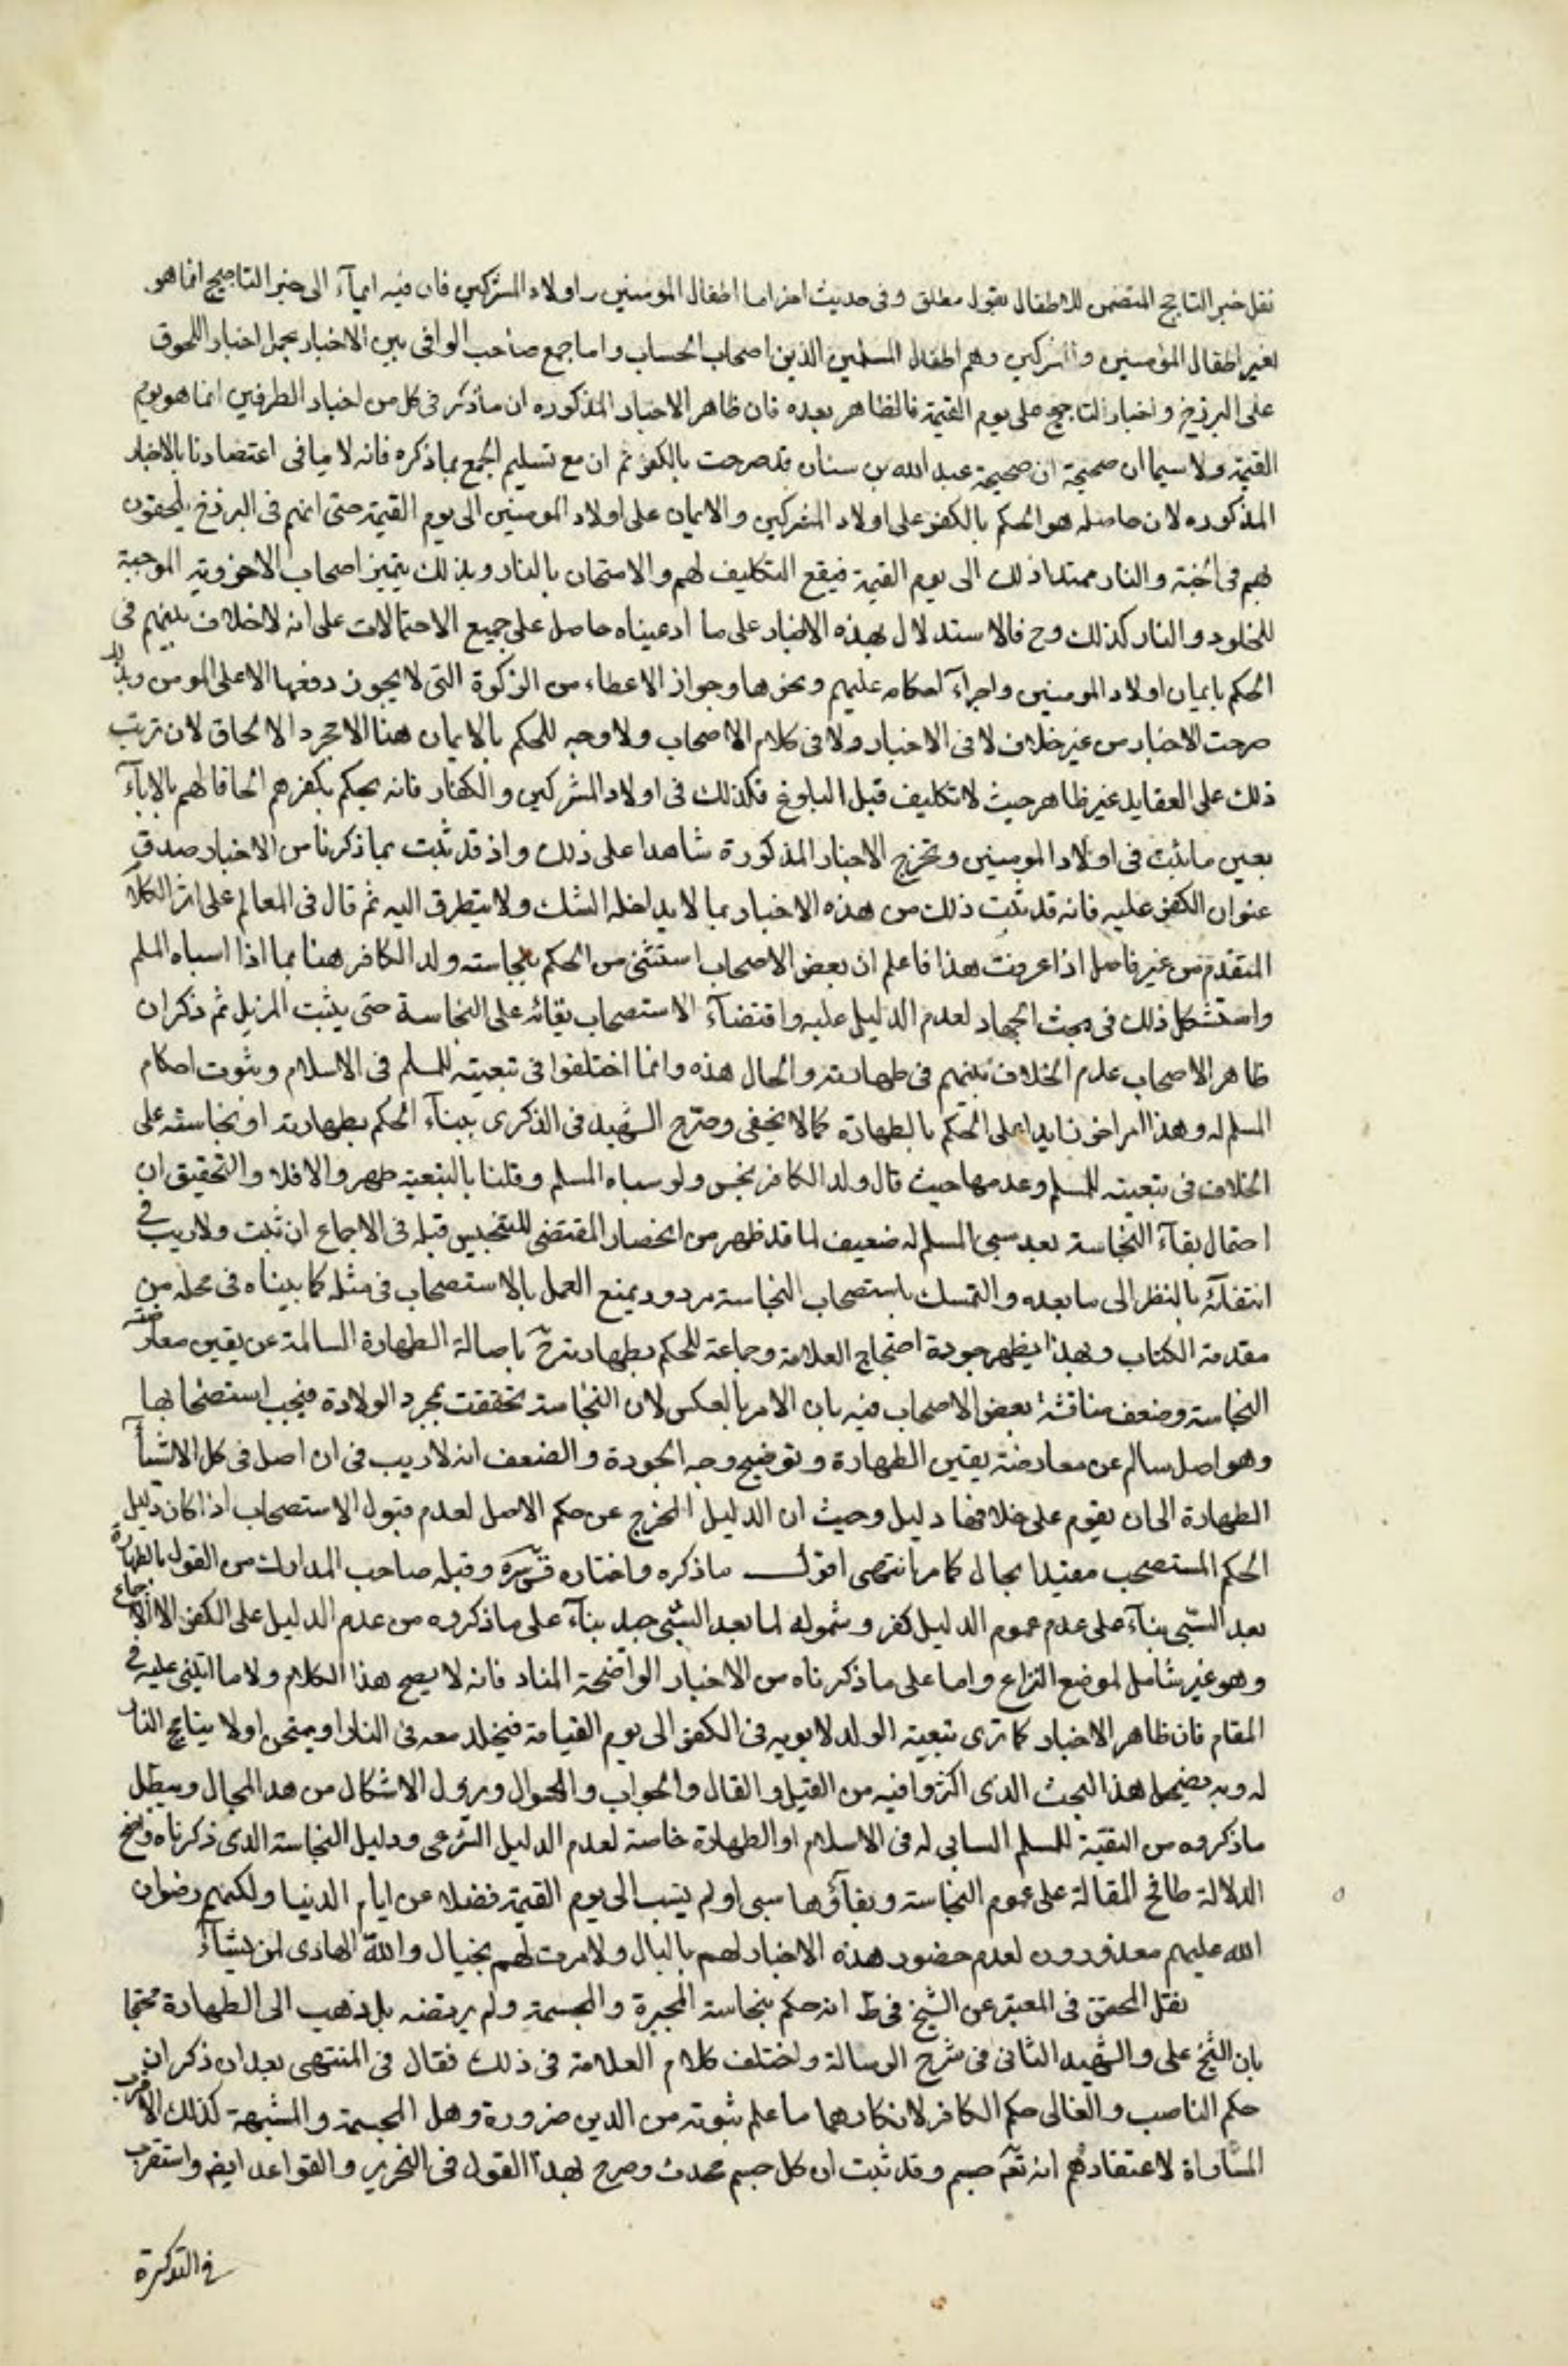 نقل خبر التاجج المتضمن للاطفال بقول مطلق وفى حديث اخر اما اطفال المومنين واولاد المشركين فان فيه ايمآء الى خبر التاجيج انما هو
لغير اطفال المؤمنين والمشركين وهم اطفال المسلمين الذين اصحاب الحساب واما جمع صاحب الوافى بين الاخبار بحمل اخبار اللحوق
على البرزخ واخبار التاجج على يوم القيمة فالظاهر بعده فان ظاهر الاخبار المذكوره ان ما ذكر فى كل من اخبار الطرفين انما هو يوم
القيمة ولا سيما ان صحيحة ان صحيحة عبد الله بن سنان قد صرحت بالكفر ثم ان مع تسليم الجمع بما ذكره فانه لا ينافى اعتضادنا بالاخبار
المذكوره لان حاصله هو الحكم بالكفر على اولاد المشركين والايمان على اولاد المومنين الى يوم القيمة حتى انهم فى البرزخ يلحقون
بهم فى الجنة والنار ممتدا ذلك الى يوم القيمة فيقع التكليف لهم والامتحان بالنار وبذلك يتميز اصحاب الاخروية الموجبة
للخلود والنار كذلك وح فالاستدلال بهذه الاخبار على ما ادعيناه حاصل على جميع الاحتمالات على انه لاخلاف بينهم فى
الحكم بايمان اولاد المومنين واجرآء احكامه عليهم ونحوها وجواز الاعطاء من الزكوة التى لا يجوز دفعها الا على المومن وبذلك
صرحت الاخبار من غير خلاف لا فى الاخبار ولا فى كلام الاصحاب ولا وجه للحكم بالايمان هنا الا مجرد الالحاق لان ترتب
ذلك على العقايد غير ظاهر حيث لا تكليف قبل البلوغ فكذلك فى اولاد المشركين والكفار فانه يحكم بكفرهم الحاقا لهم بالابآء
بعين ما ثبت فى اولاد المومنين وتخرج الاخبار المذكورة شاهدا على ذلك واذ قد ثبت بما ذكرنا من الاخبار صدق
عنوان الكفر عليه فانه قد ثبت ذلك من هذه الاخبار بما لا يداخله الشك ولا يتطرق اليه ثم قال فى المعالم على اثر الكلام
المتقدم من غير فاصل اذا عرفت هذا فاعلم ان بعض الاصحاب استثنى من الحكم بنجاسته ولد الكافر هنا بما اذا اسباه المسلم
واستشكل ذلك فى بحث الجهاد لعدم الدليل عليه واقتضآء الاستصحاب بقائه على النجاسة حتى يثبت المزيل ثم ذكر ان
ظاهر الاصحاب عدم الخلاف بينهم فى طهارته والحال هذه وانما اختلفوا فى تبعيته للمسلم فى الاسلام وثبوت احكام
المسلم له وهذا امر اخر زايد على الحكم بالطهارة كما لا يخفى وصرح الشهيد فى الذكرى ببنآء الحكم بطهارته او نجاسته على
الخلاف فى تبعيته للمسلم وعدمها حيث قال ولد الكافر نجس ولو سباه المسلم وقلنا بالتبعية طهر والا فلا والتحقيق ان
احتمال بقآء النجاسة بعد سبى المسلم له ضعيف لما قد ظهر من انحصار المقتضى للتنجيس قبله فى الاجماع ان ثبت ولا ريب فى
انتفآئه بالنظر الى ما بعده والتمسك باستصحاب النجاسة مردود بمنع العمل بالاستصحاب فى مثله كما بيناه فى محله من
مقدمة الكتاب وبهذا يظهر جودة احتجاج العلامة وجماعة للحكم بطهارته ح باصالة الطهارة السالمة عن يقين معارضة
النجاسة وضعف مناقشة بعض الاصحاب فيه بان الامر بالعكس لان النجاسة تحققت بمجرد الولادة فيجب استصحابها
وهو اصل سالم عن معارضة يقين الطهارة وتوضيح وجه الجودة والضعف انه لا ريب فى ان اصل فى كل الاشيآ
الطهارة الى ان يقوم على خلافها دليل وحيث ان الدليل المخرج عن حكم الاصل لعدم قبول الاستصحاب اذا كان دليل
الحكم المستصحب مقيدا بحال كما مر انتهى اقول ما ذكره واختاره قدس سره وقبله صاحب المدارك من القول بالطهارة
بعد السبى بنآء على عدم عموم الدليل كفر وشموله لما بعد السبى جيد بنآء على ما ذكروه من عدم الدليل على الكفر الا الاجماع
وهو غير شامل لموضع النزاع واما على ما ذكرناه من الاخبار الواضحة المناد فانه لا يصح هذا الكلام ولا ما ابتنى عليه فى
المقام فان ظاهر الاخبار كما ترى تبعية الولد لابويه فى الكفر الى يوم القيامة فيخلد معه فى النار او يمتحن اولا بتاجج النار
له وبه يضمحل هذا البحث الذى اكثروا فيه من القيل والقال والجواب والسؤال ويزول الاشكال من هذا المجال ويبطل
ما ذكروه من التبعية للمسلم السابى له فى الاسلام او الطهارة خاصة لعدم الدليل الشرعى ودليل النجاسة الذى ذكرناه واضح
الدلالة طافح المقالة على عموم النجاسة وبقآؤها سبى او لم يسب الى يوم القيمة فضلا عن ايام الدنيا ولكنهم رضوان
الله عليهم معذورون لعدم حضور هذه الاخبار لهم بالبال ولا مرت لهم بخيال والله الهادى لمن يشآء
نقل المحقق فى المعتبر عن الشيخ فى ط انه حكم بنجاسة المجبرة والمجسمة ولم يرتضه بل ذهب الى الطهارة محتجا
بان الشيخ على والشهيد الثانى فى شرح الرسالة واختلف كلام العلامة فى ذلك فقال فى المنتهى بعد ان ذكر ان
حكم الناصب والغالى حكم الكافر لانكارهما ما علم ثبوته من الدين ضرورة وهل المجسمة والمشبهة كذلك الاقرب
المساواة لاعتقادهم انه تعم جسم وقد ثبت ان كل جسم محدث وصرح بهذا القول فى التحرير والقواعد ايضم واستقرب
فى التذكرة